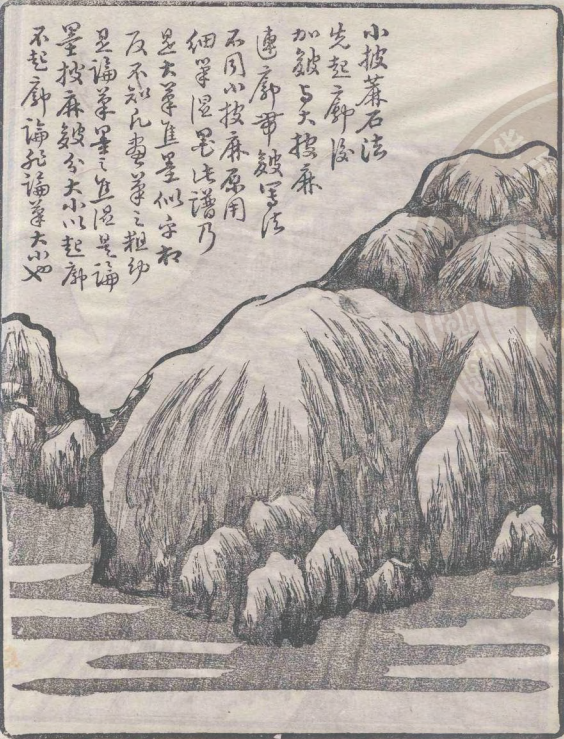 小披蔴石法
先起廓後
加皴与大披麻
連廓带皴寫法
不同小披麻原用
細筆濕墨法譜乃
是大筆焦墨似乎相
反不知凡畫筆之粗幼
是論筆墨之焦濕是論
墨披麻皴分大小以起廓
不起廓論非論筆大小也